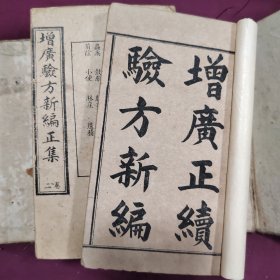 增廣正續
驗方新編
增廣驗方新編正集
卷二